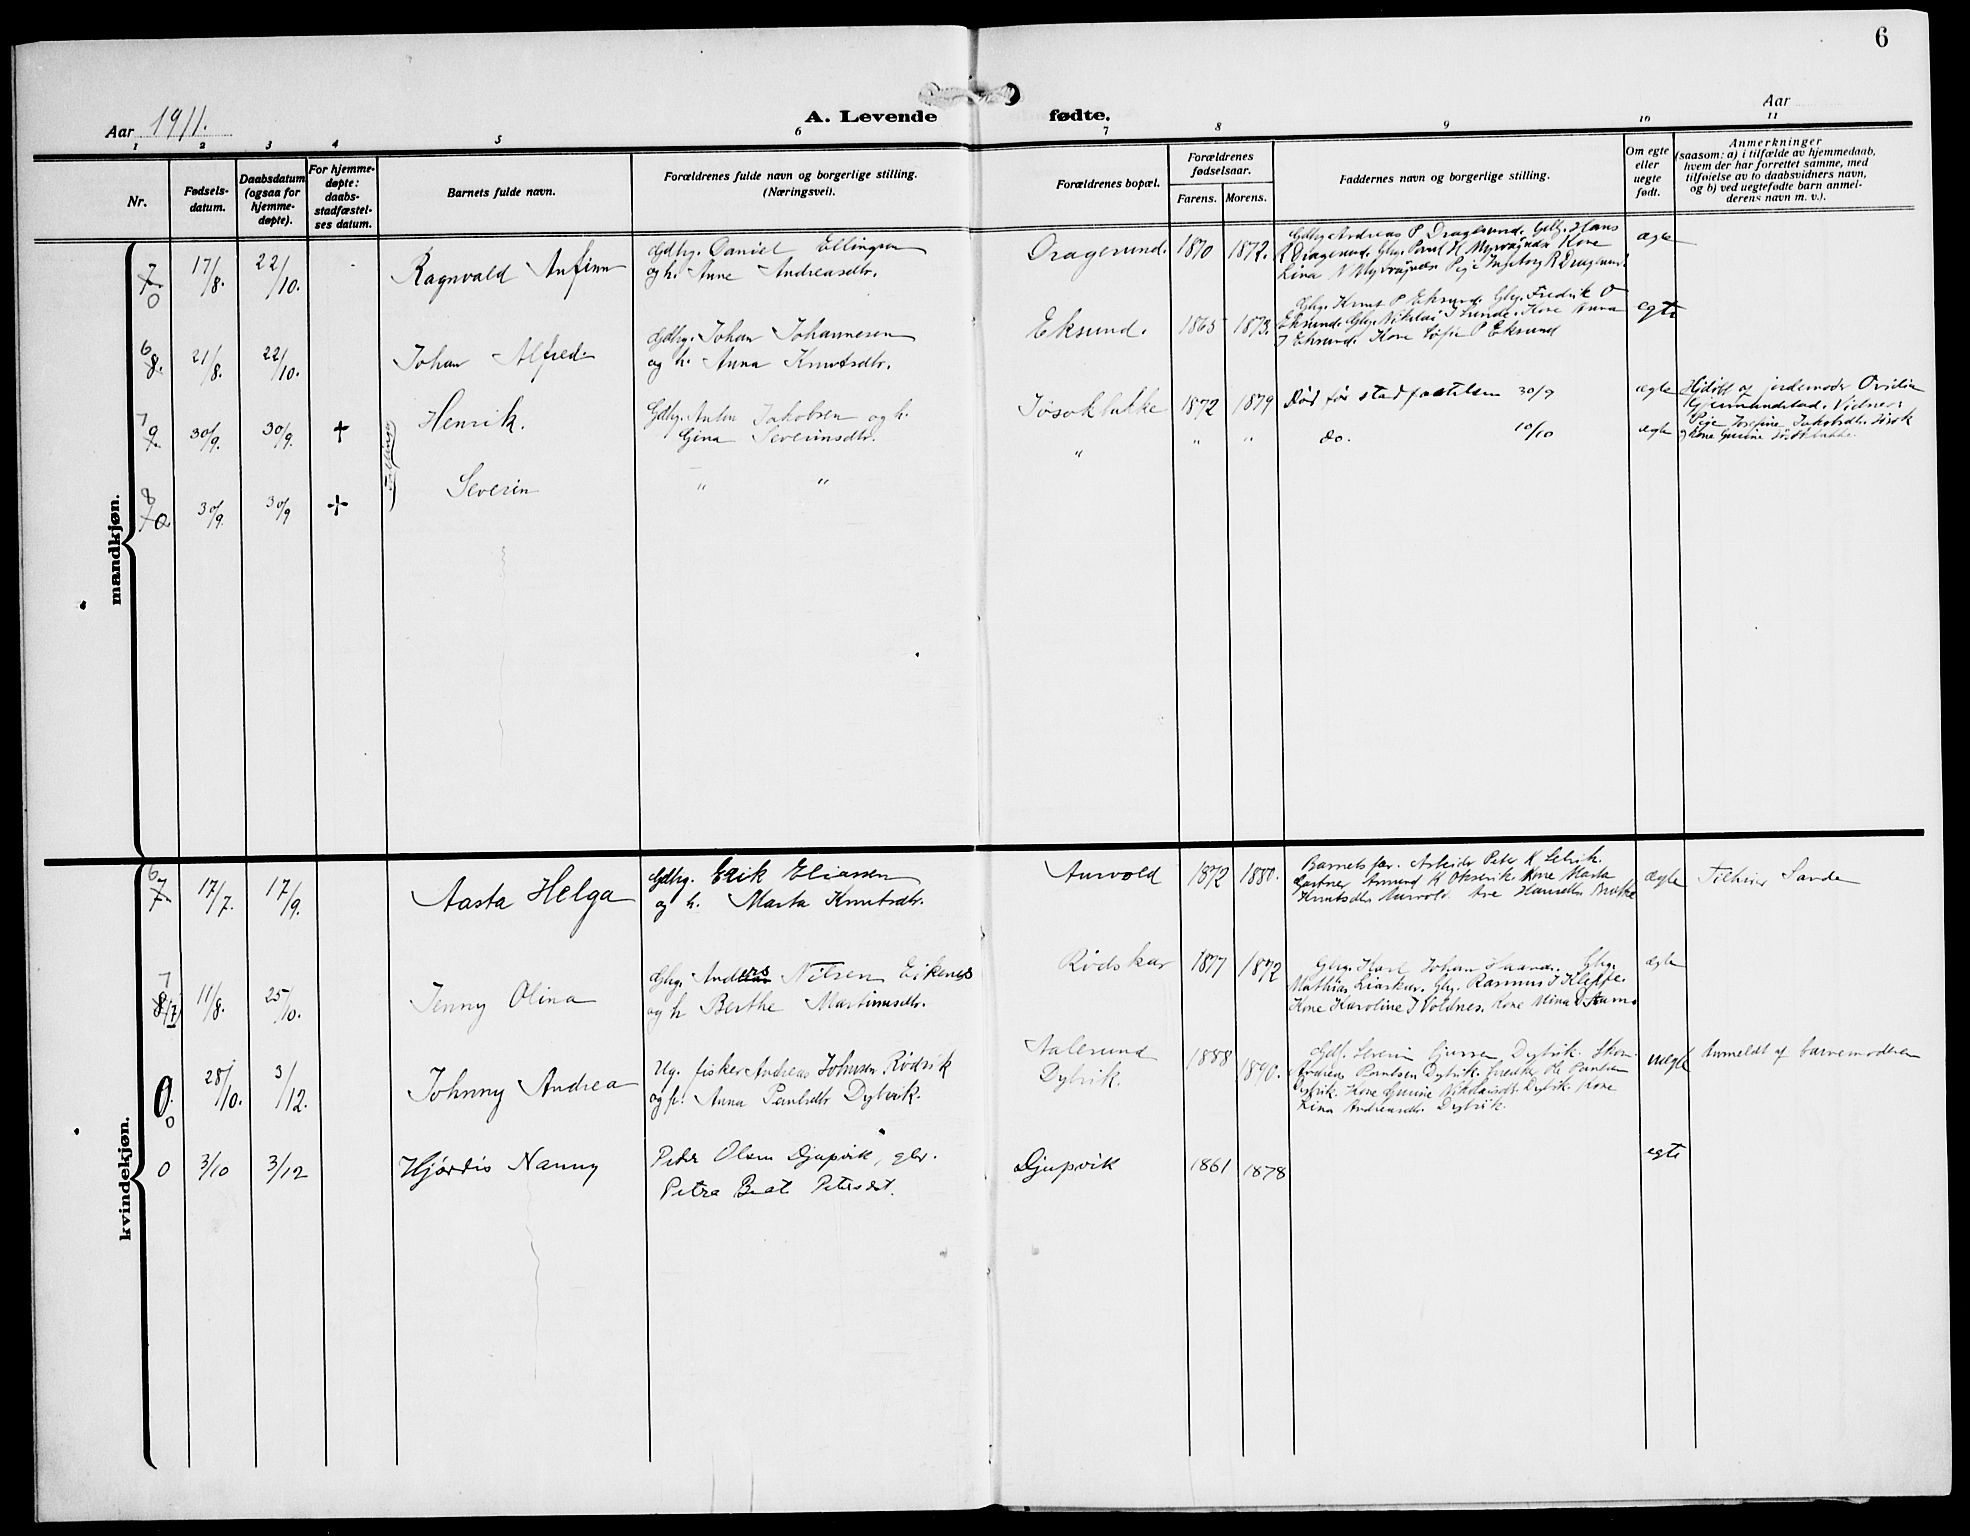 6
Aar 1911.
A. Levende fødte.
Aar
1 2 3 4 5 6 7 8 9 10 11
Nr.
Fødsels-
datum.
Daabsdatum
(ogsaa for
hjemme-
døpte).
For hjemme-
døpte:
daabs-
stadfæstel-
ses datum.
Barnets fulde navn.
Forældrenes fulde navn og borgerlige stilling.
(Næringsvei).
Forældrenes bopæl.
Forældrenes
fødselsaar.
Farens. Morens.
Faddernes navn og borgerlige stilling.
Om egte
eller
uegte
født.
Anmerkninger
(saasom: a) i tilfælde av hjemmedaab,
hvem der har forrettet samme, med
tilføielse av to daabsvidners navn,
og b) ved uegtefødte barn anmel-
derens navn m. v.).
mandkjøn.
7
0
17/8.
22/10.
Ragnvald Anfinn
Gdbg. Daniel Ellingsen
og h. Anne Andreasdtr.
Dragesund.
1870
1872.
Gdbg. Andreas P Dragesund. Gbg. Hans
R Dragesund. Gbg. Paul H Kone
Lina Pige Ingeborg R Dragesund.
ægte
6
8.
21/8.
22/10.
Johan Alfred.
Gdbg. Johan Johannesen
og h. Anna Knutsdtr.
Eksund.
1865
1873.
Gbg. Knut P Eksund. Gbg. Fredrik O
Eksund. Gbg. Nikolai I Lunde. Kone Anna
J Eksund. Kone Sofie P Eksund
egte
7
9.
30/9.
30/9.
✝
Henrik.
Tvillinger
Gdbg. Anton Jakobsen og h.
Gina Severinsdtr.
Jøsoklukke
1872
1879
Død før stadfæstelsen 30/9
ægte
Hjdøbt av jordemoder Ovidia
Gjermundstad. Vidner:
Pige Josefine Jakobsdtr. Jøsok
og Kone Gurine
8
10.
30/9.
30/9
✝
Severin
" "
"
" "
do. 10/10
ægte
kvindekjøn.
6
7
17/7.
17/9.
Aasta Helga
Gdbg. Erik Eliassen
og h. Marta Knutsdtr.
Aurvold
1872
1880.
Barnets far. Arbeider Peter K Selvik.
Gartner Amund K Oksevik. Kone Marta
Knutsdtr Aurvold. Ane Hansdtr
ægte
Tilhører Sande
7
8/7
11/8.
25/10.
Jenny Olina
Gbg. Anders Nilsen Eikenes
og h Berthe Martinusdtr.
Rødskar
1877
1872
Gbg. Karl Johan Haande. Gbg.
Mathias Liaskar. Gbg. Rasmus J Kleppe.
Kone Karoline J Voldnes. Kone Mina D
ægte
0
28/10.
3/12.
Johnny Andrea
Ug. fisker Andreas Johnsen Rødvik
og p. Anna Paulsdtr Dybvik.
Aalesund
Dybvik.
1888
1890.
Gdf. Severin Dybvik.
Andreas Paulsen Dybvik. Paulsen
Dybvik. Kone Gurine Nikolaisdtr Dybvik. Kone
Lina Andreasdtr. Dybvik.
uægte
Anmeldt af barnemoderen
0
3/10
3/12
Hjørdis Nanny
Peder Olsen Djupvik, gbr.
Petra Beate Petersdat.
Djupvik
1861
1878
egte